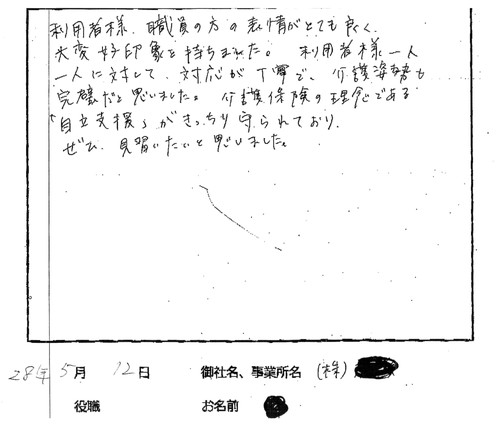 利用者様、職員の方の表情がとても良く、
大変好印象を持ちました。 利用者様一人
一人に対して、対応が丁寧で、介護姿勢も
完璧だと思いました。 介護保険の理念である
「自立支援」がきっちり守られており、
ぜひ、見習いたいと思いました。
28年 5月 12日 御社名、事業所名 (株)
役職 お名前